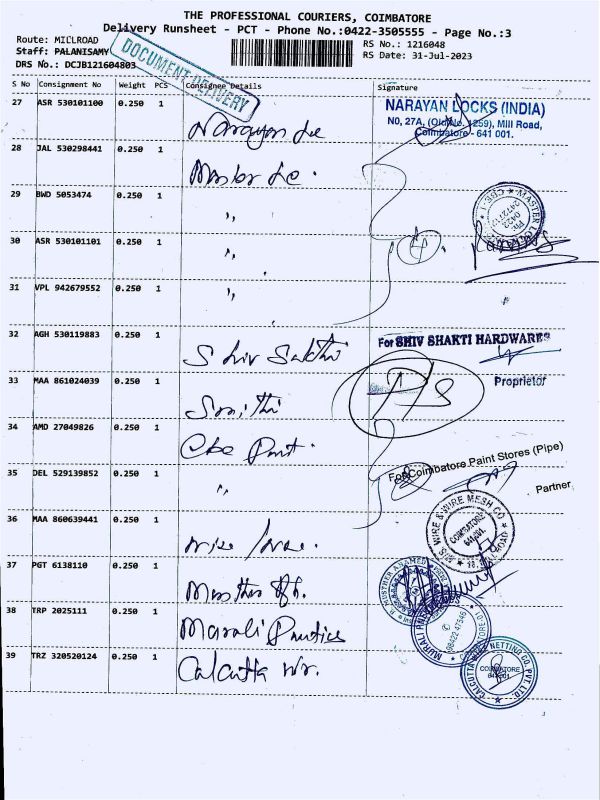 THE PROFESSIONAL COURIERS, COIMBATORE
Delivery Runsheet - PCT - Phone No.:0422-3505555 - Page No.:3
Route: MILLROAD
RS No.: 1216048
Staff: PALANISAMY
RS Date: 31-Jul-2023
DRS No.: DCJB121604803
DOCUMENT DELIVERY
S No Consignment No Weight PCS Consignee Details Signature
27 ASR 530101100 0.250 1 Narayan Lc
NARAYAN LOCKS (INDIA)
NO, 27A, (Old No. 1259), Mill Road,
Coimbatore - 641 001.
28 JAL 530298441 0.250 1 Master Lc.
29 BWD 5053474 0.250 1 ,,
30 ASR 530101101 0.250 1 ,,
4
31 VPL 942679552 0.250 1 ,,
32 AGH 530119883 0.250 1 Shiv Sakthi
For SHIV SHAKTI HARDWARES
Proprietor
33 MAA 861024039 0.250 1
34 AMD 27049826 0.250 1 Cbe Paint.
For Coimbatore Paint Stores (Pipe)
Partner
35 DEL 529139852 0.250 1 ,,
36 MAA 860639441 0.250 1
M/S. WIRE & WIRE MESH CO
COIMBATORE
641 001.
37 PGT 6138110 0.250 1
38 TRP 2025111 0.250 1 Murali
98422 47546
39 TRZ 320520124 0.250 1 Calcutta wr.
CALCUTTA WIRE NETTING CO. PVT. LTD.
COIMBATORE
641 001